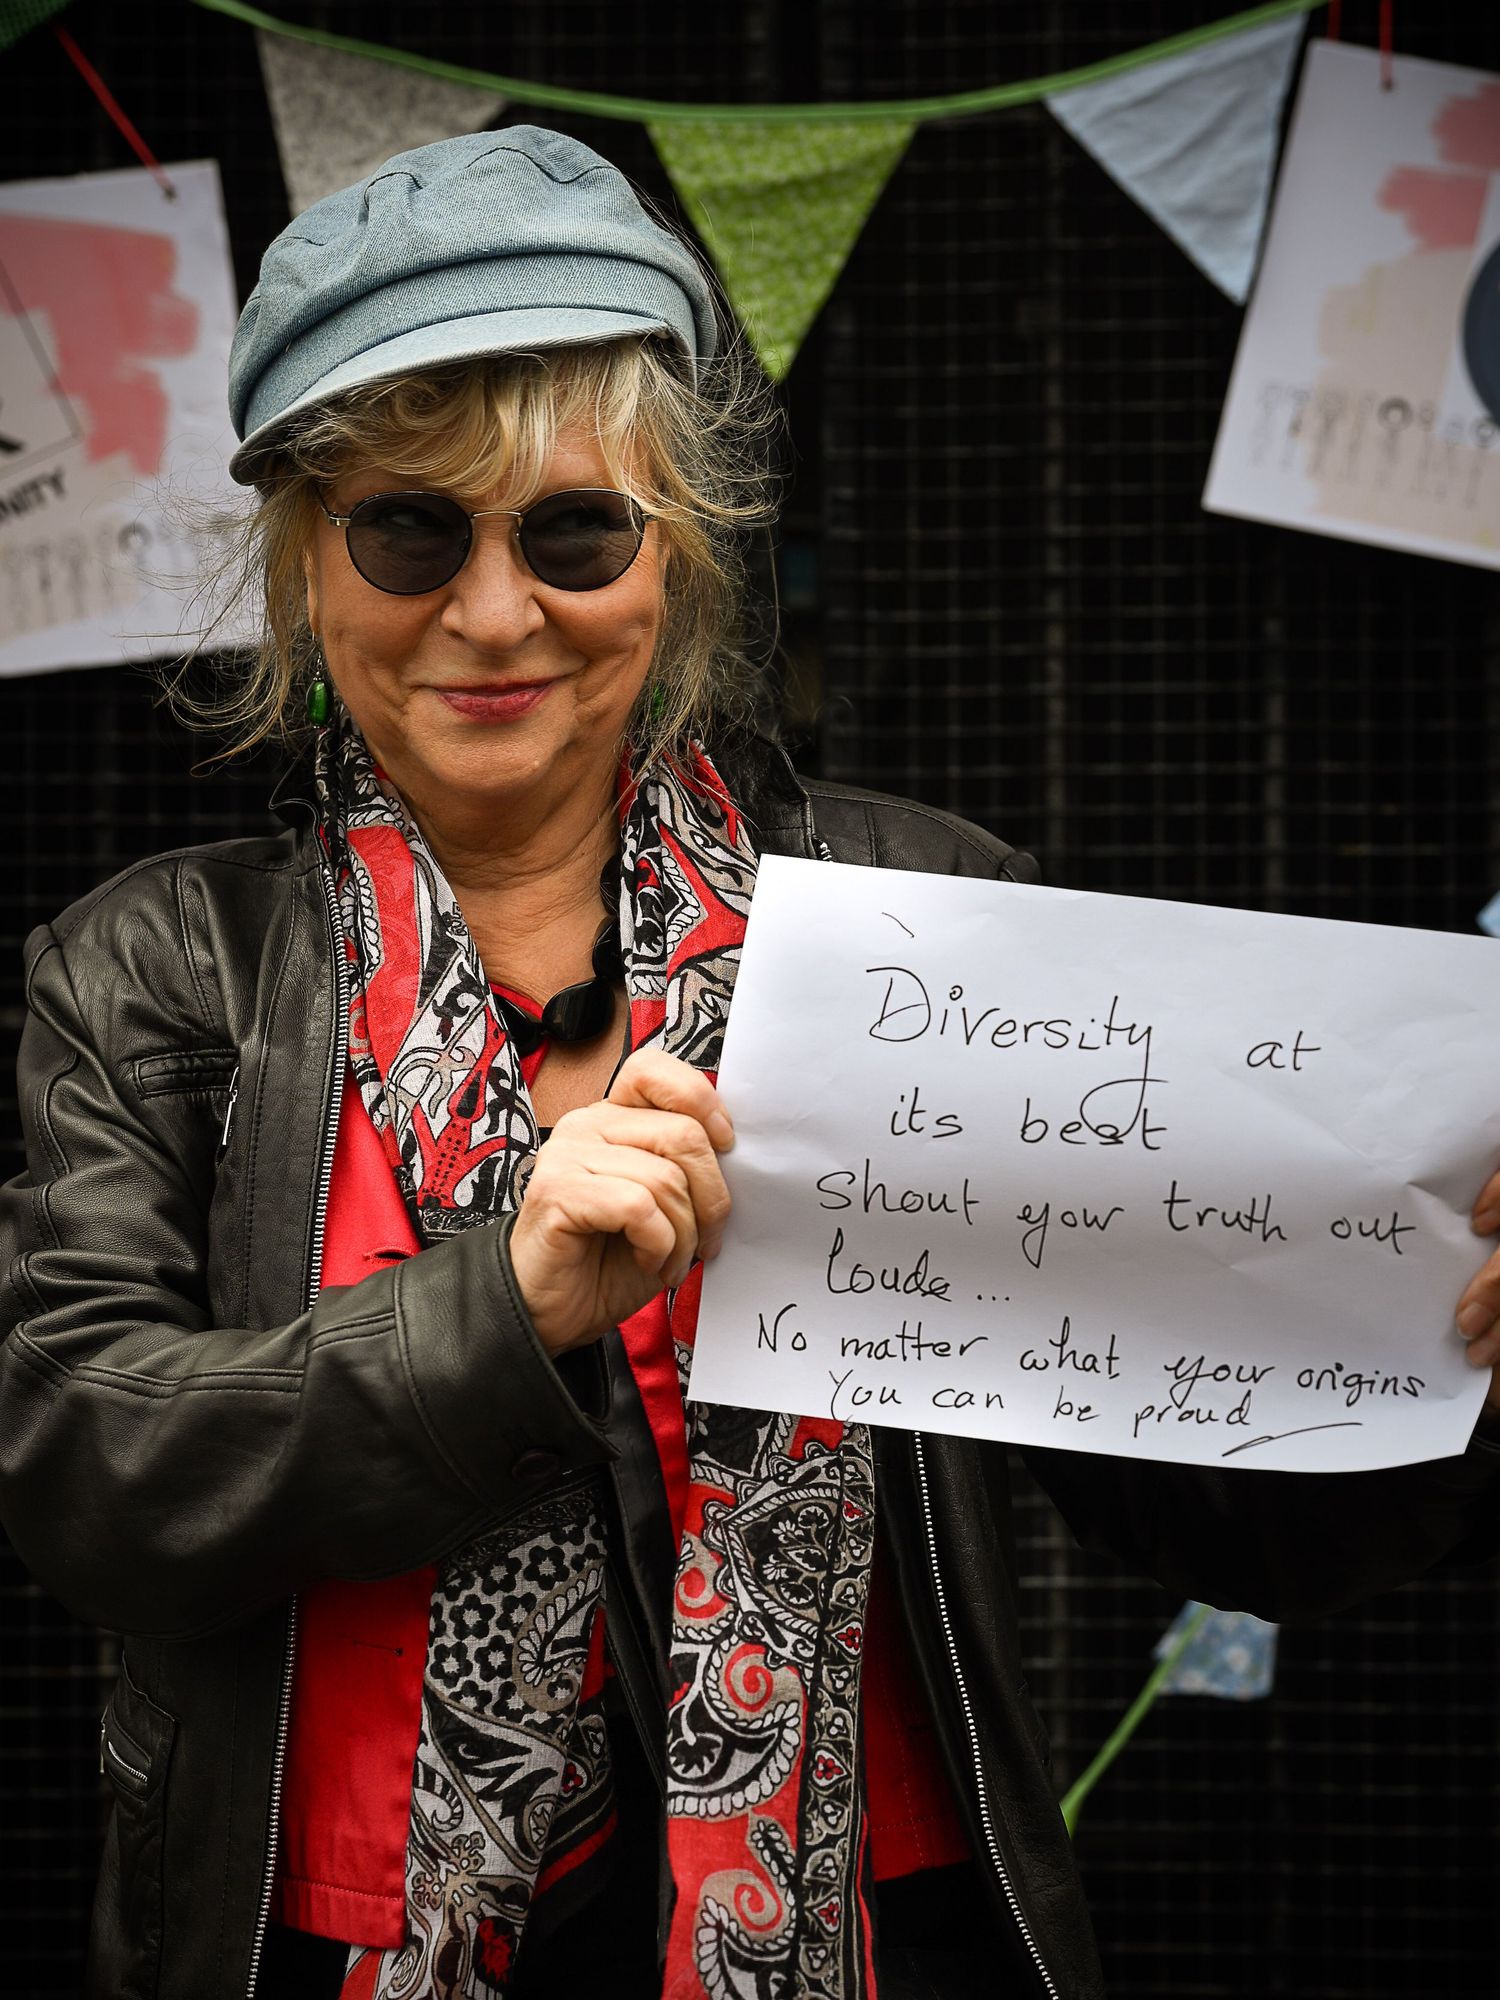 Diversity at
its best
Shout your truth out
loude...
No matter what your origins
You can be proud
NITY